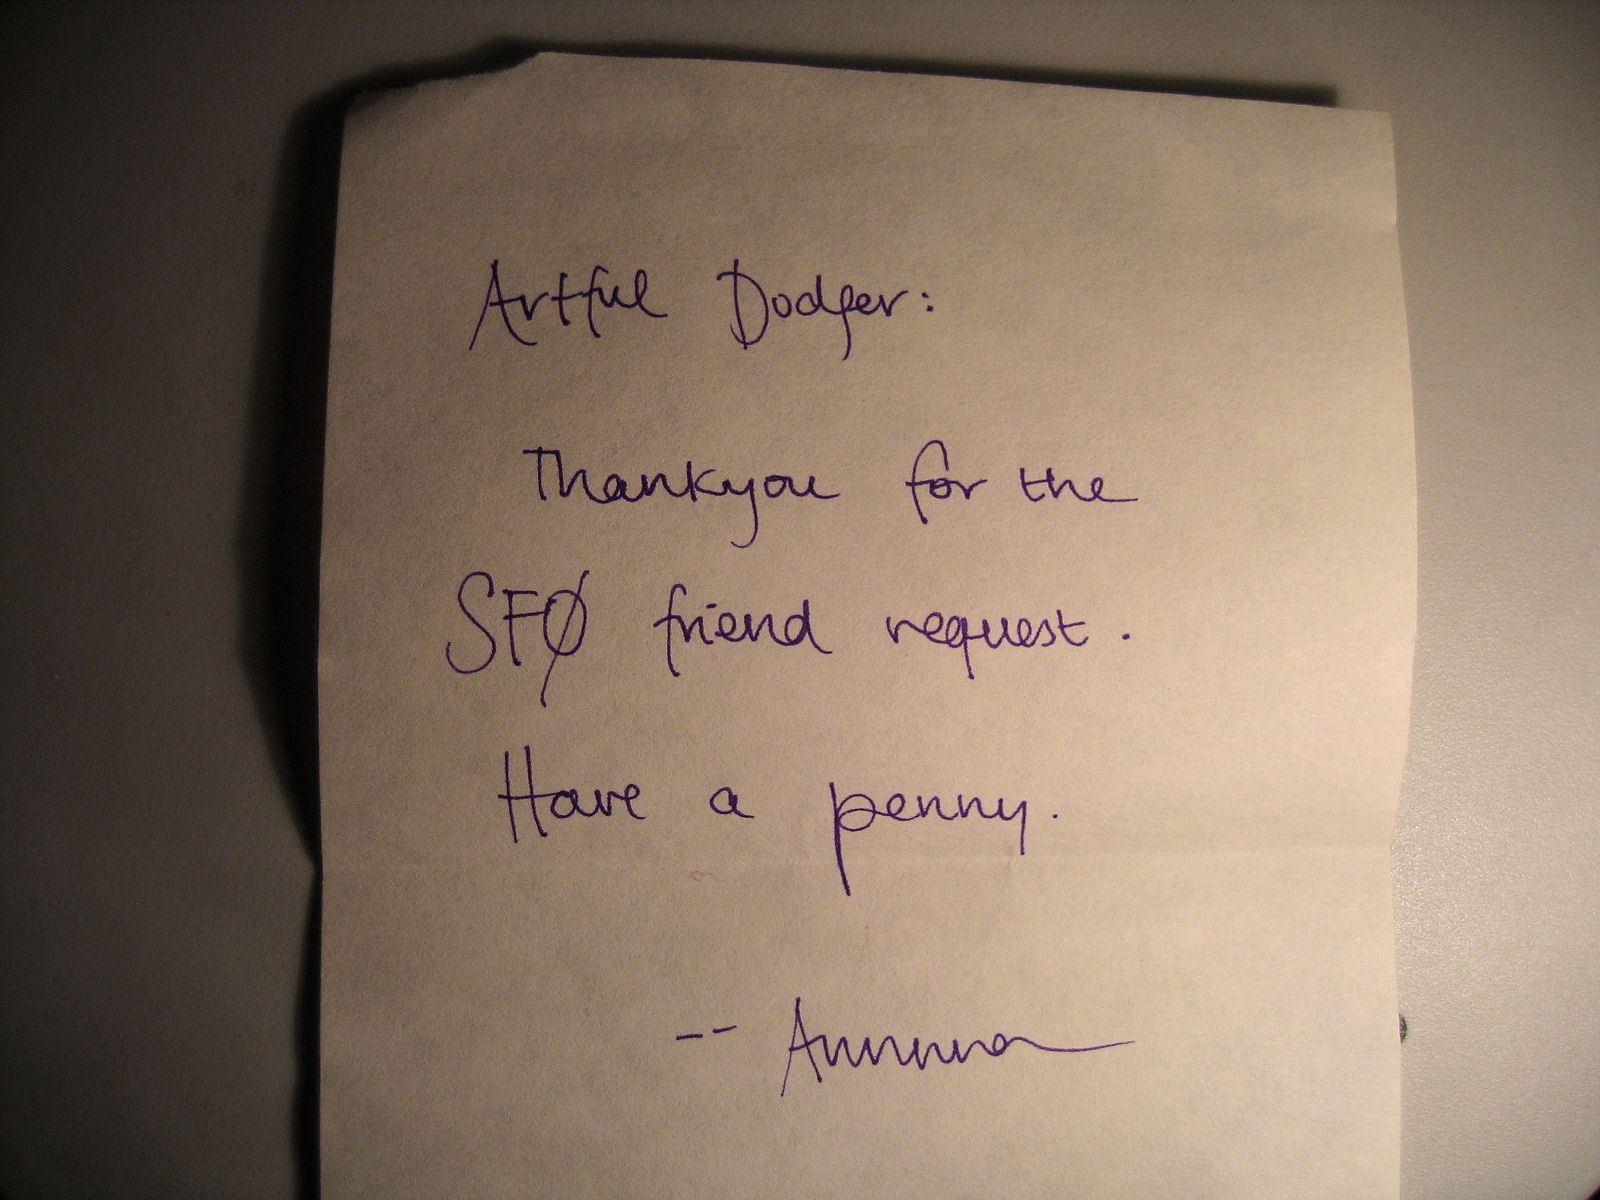 Artful Dodger:
Thankyou for the
SFØ friend request.
Have a penny.
--